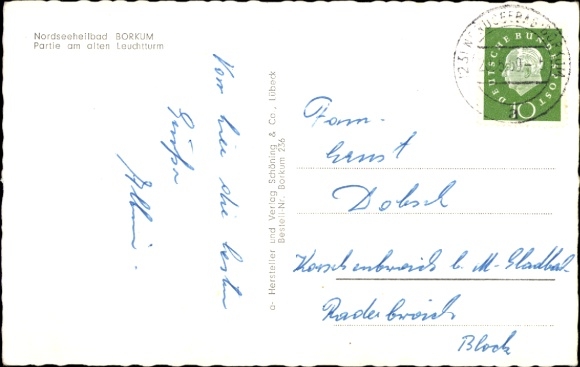 Nordseeheilbad BORKUM
Partie am alten Leuchtturm
Von hier die besten
Grüße
a- Hersteller und Verlag Schöning & Co., Lübeck
Bestell-Nr. Borkum 236
DEUTSCHE BUNDESPOST
10
Fam.
Ernst
Dobsch
Korschenbroich b. M-Gladbach
Raderbroich
Block